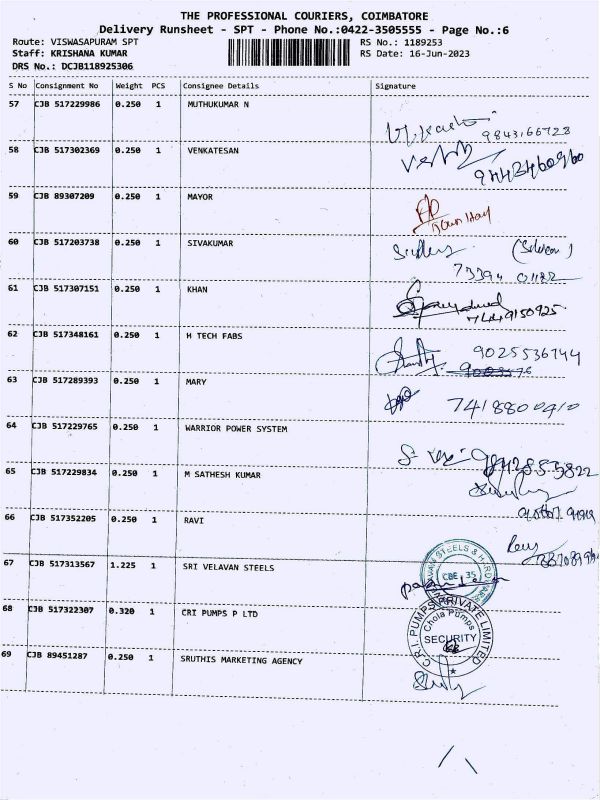 THE PROFESSIONAL COURIERS, COIMBATORE
Delivery Runsheet - SPT - Phone No.:0422-3505555 - Page No.:6
Route: VISWASAPURAM SPT
Staff: KRISHANA KUMAR
DRS No.: DCJB118925306
RS No.: 1189253
RS Date: 16-Jun-2023
S No Consignment No Weight PCS Consignee Details Signature
57 CJB 517229986 0.250 1 MUTHUKUMAR N
9843166728
58 CJB 517302369 0.250 1 VENKATESAN
9443460960
59 CJB 89307209 0.250 1 MAYOR
60 CJB 517203738 0.250 1 SIVAKUMAR
73394 01122
61 CJB 517307151 0.250 1 KHAN
7449150925
62 CJB 517348161 0.250 1 H TECH FABS
9025536744
63 CJB 517289393 0.250 1 MARY
7418800410
64 CJB 517229765 0.250 1 WARRIOR POWER SYSTEM
9842853822
65 CJB 517229834 0.250 1 M SATHESH KUMAR
66 CJB 517352205 0.250 1 RAVI
67 CJB 517313567 1.225 1 SRI VELAVAN STEELS
CBE 35
68 CJB 517322307 0.320 1 CRI PUMPS P LTD
C.R.I. PUMPS PRIVATE LIMITED
Chola Pumps
SECURITY
69 CJB 89451287 0.250 1 SRUTHIS MARKETING AGENCY